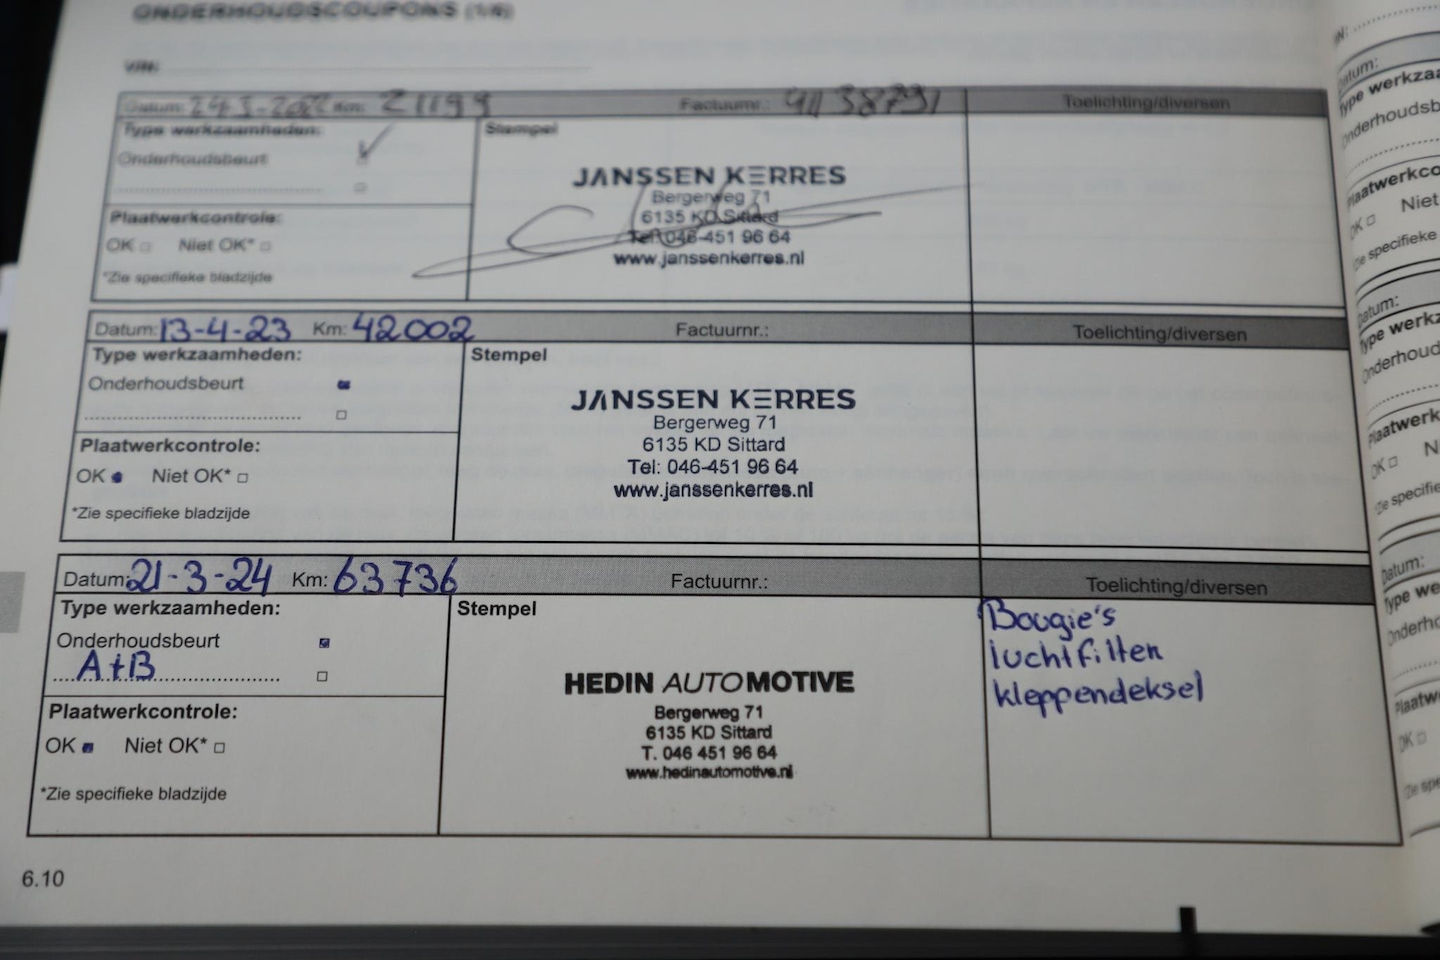 ONDERHOUDSCOUPONS (1/6)
VIN:
Datum: Km: 21199 Factuurnr.: Toelichting/diversen
Type werkzaamheden:
Onderhoudsbeurt
Plaatwerkcontrole:
OK Niet OK*
*Zie specifieke bladzijde
Stempel
JANSSEN KERRES
Bergerweg 71
6135 KD Sittard
Tel: 046-451 96 64
www.janssenkerres.nl
Datum: 13-4-23 Km: 42002 Factuurnr.: Toelichting/diversen
Type werkzaamheden:
Onderhoudsbeurt
Plaatwerkcontrole:
OK Niet OK*
*Zie specifieke bladzijde
Stempel
JANSSEN KERRES
Bergerweg 71
6135 KD Sittard
Tel: 046-451 96 64
www.janssenkerres.nl
Datum: 21-3-24 Km: 63736 Factuurnr.: Toelichting/diversen
Type werkzaamheden:
Onderhoudsbeurt
A+B
Plaatwerkcontrole:
OK Niet OK*
*Zie specifieke bladzijde
Stempel
HEDIN AUTOMOTIVE
Bergerweg 71
6135 KD Sittard
T. 046 451 96 64
www.hedinautomotive.nl
Bougie's
luchtfilter
kleppendeksel
6.10
Datum:
Onderhoudsb
Plaatwerkco
OK Niet
Datum:
Type werkz
Onderhoud
Plaatwerk
OK N
Datum:
Type we
Onderho
OK